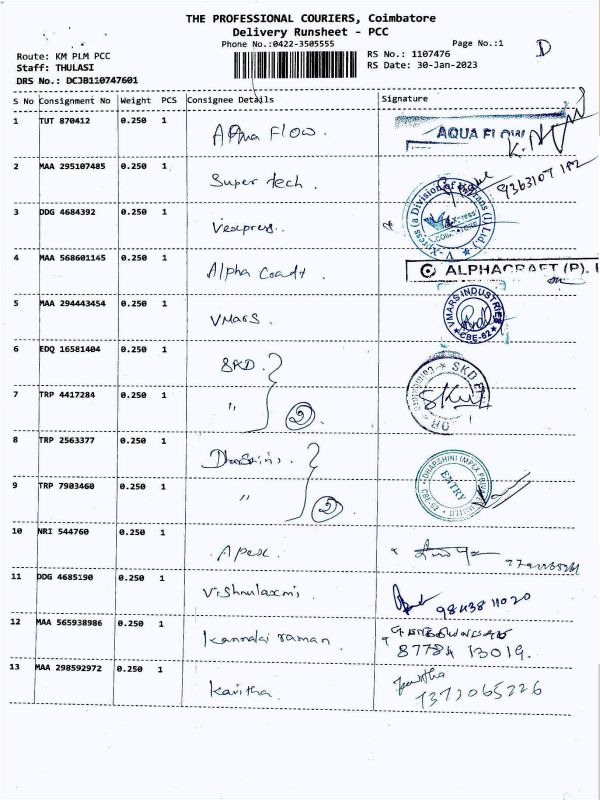 THE PROFESSIONAL COURIERS, Coimbatore
Delivery Runsheet - PCC
Phone No.:0422-3505555 Page No.:1
D
Route: KM PLM PCC RS No.: 1107476
Staff: THULASI RS Date: 30-Jan-2023
DRS No.: DCJB110747601
S No Consignment No Weight PCS Consignee Details Signature
1 TUT 870412 0.250 1 Aqua Flow. AQUA FLOW
2 MAA 295107485 0.250 1 Super tech.
3 DDG 4684392 0.250 1 Vexpress. V-Xpress (a Division of
4 MAA 568601145 0.250 1 Alpha Coadt. ALPHACRAFT (P).
5 MAA 294443454 0.250 1 VMARS. VMARS INDUSTRIES CBE-62
6 EDQ 16581404 0.250 1 SKD. SKD
7 TRP 4417284 0.250 1 " 2
8 TRP 2563377 0.250 1 Dharshini. DHARSHINI IMPEX PRIVATE LIMITED CBE-62 ENTRY
9 TRP 7903460 0.250 1 " 2
10 NRI 544760 0.250 1 Apex.
11 DDG 4685190 0.250 1 Vishnulaxmi 98438 11020
12 MAA 565938986 0.250 1 Kannalai raman. 87784 13019.
13 MAA 298592972 0.250 1 Kavitha. 7373065226